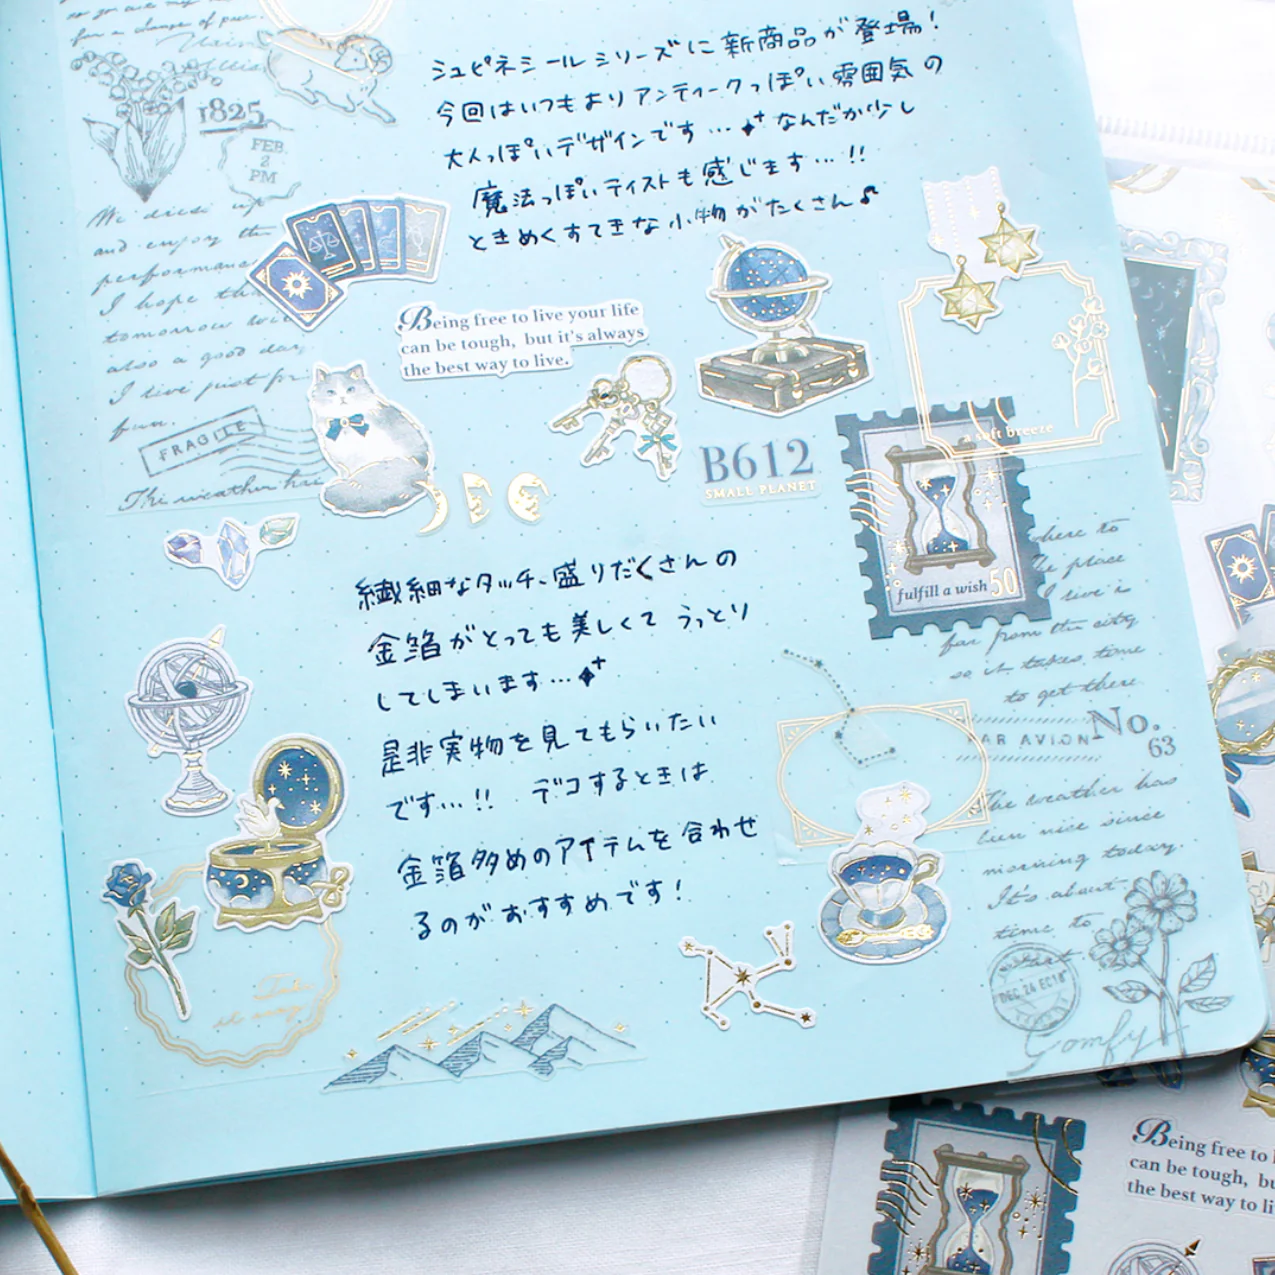 for a change of pace.
1825
FEB
2
PM
シュピネシールシリーズに新商品が登場!
今回はいつもよりアンティークっぽい雰囲気の
大人っぽいデザインです… なんだか少し
魔法っぽいテイストも感じます…!!
ときめくすてきな小物がたくさん♪
We dress up
and enjoy the
performance
I hope the
tomorrow will
also a good day
I live just fr
fun.
FRAGILE
The weather
Being free to live your life
can be tough, but it's always
the best way to live.
B612
SMALL PLANET
a soft breeze
fulfill a wish 50
here to
the place
I live is
far from the city
so it takes time
to get there
PAR AVION
No.
63
The weather has
been nice since
morning today.
It's about
time to
DEC 24
Comfy
繊細なタッチ、盛りだくさんの
金箔がとっても美しくて うっとり
してしまいます…
是非実物を見てもらいたい
です…!! デコするときは
金箔多めのアイテムを合わせ
るのがおすすめです!
Take
it easy
Being free to
can be tough, bu
the best way to li